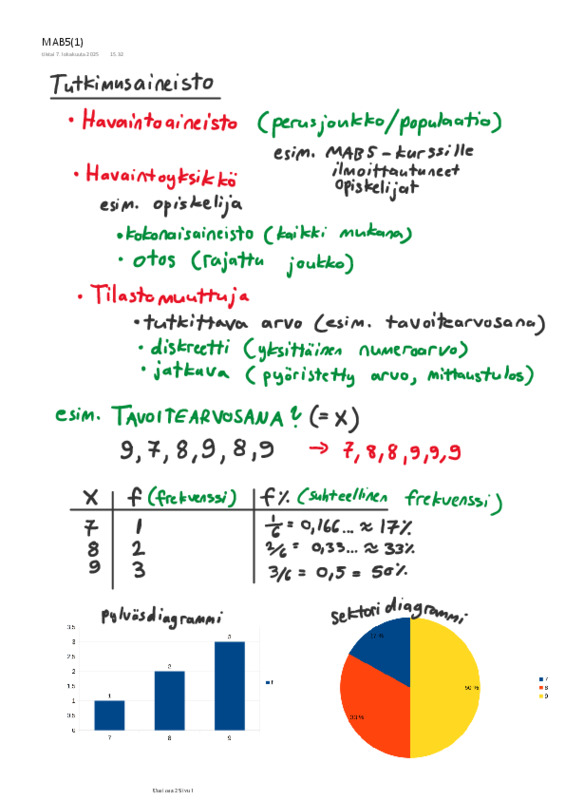 MAB5(1)
15.32
Tutkimusaineisto
• Havaintoaineisto (perusjoukko/populaatio)
esim. MAB5-kurssille
ilmoittautuneet
opiskelijat
• Havaintoyksikkö
esim. opiskelija
• kokonaisaineisto (kaikki mukana)
• otos (rajattu joukko)
• Tilastomuuttuja
• tutkittava arvo (esim. tavoitearvosana)
• diskreetti (yksittäinen numeroarvo)
• jatkuva (pyöristetty arvo, mittaustulos)
esim. TAVOITEARVOSANA? (= x)
9, 7, 8, 9, 8, 9 → 7, 8, 8, 9, 9, 9
x f (frekvenssi) f% (suhteellinen frekvenssi)
7 1 1/6 = 0,166... ≈ 17%
8 2 2/6 = 0,33... ≈ 33%
9 3 3/6 = 0,5 = 50%
Pylväsdiagrammi
3.5
3
2.5
2
1.5
1
0.5
0
1
2
3
7 8 9
f
Sektoridiagrammi
17 %
33 %
50 %
7
8
9